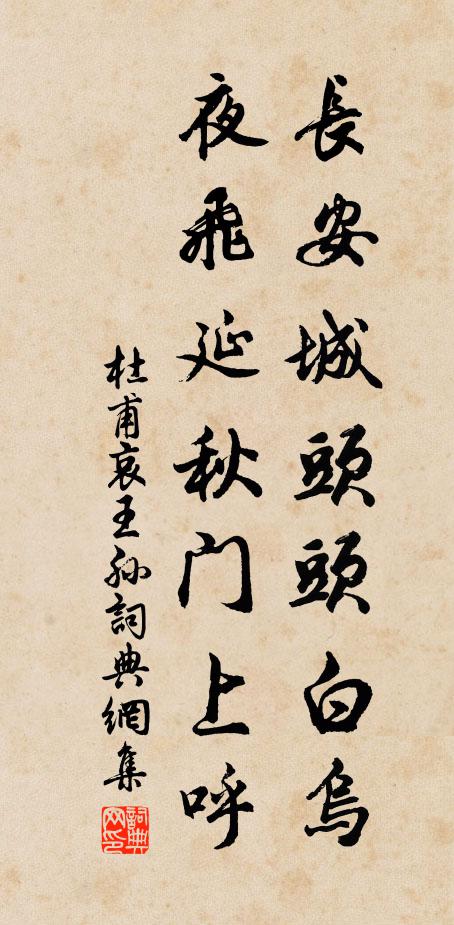 長安城頭頭白烏
夜飛延秋門上呼
杜甫哀王孫詞典網集
詞典
网印